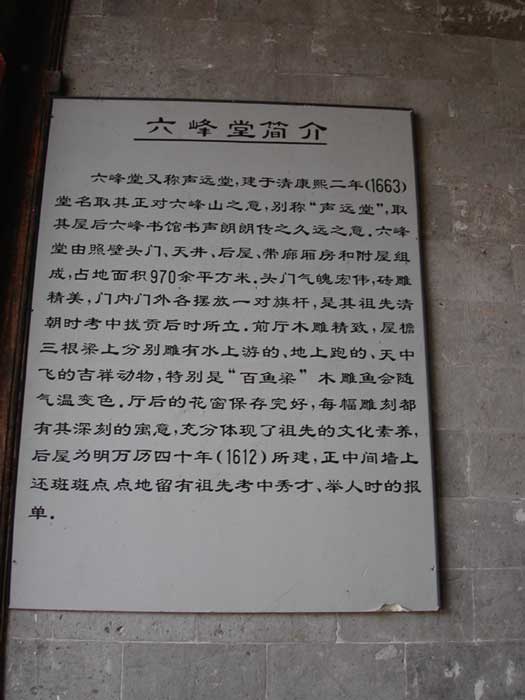 六峰堂简介
六峰堂又称声远堂,建于清康熙二年(1663)
堂名取其正对六峰山之意,别称“声远堂”,取
其屋后六峰书馆书声朗朗传之久远之意.六峰
堂由照壁头门、天井、后屋、带廊厢房和附屋组
成,占地面积970余平方米.头门气魄宏伟,砖雕
精美,门内门外各摆放一对旗杆,是其祖先清
朝时考中拔贡后时所立.前厅木雕精致,屋檐
三根梁上分别雕有水上游的、地上跑的、天中
飞的吉祥动物,特别是“百鱼梁”木雕鱼会随
气温变色.厅后的花窗保存完好,每幅雕刻都
有其深刻的寓意,充分体现了祖先的文化素养,
后屋为明万历四十年(1612)所建,正中间墙上
还斑斑点点地留有祖先考中秀才、举人时的报
单.